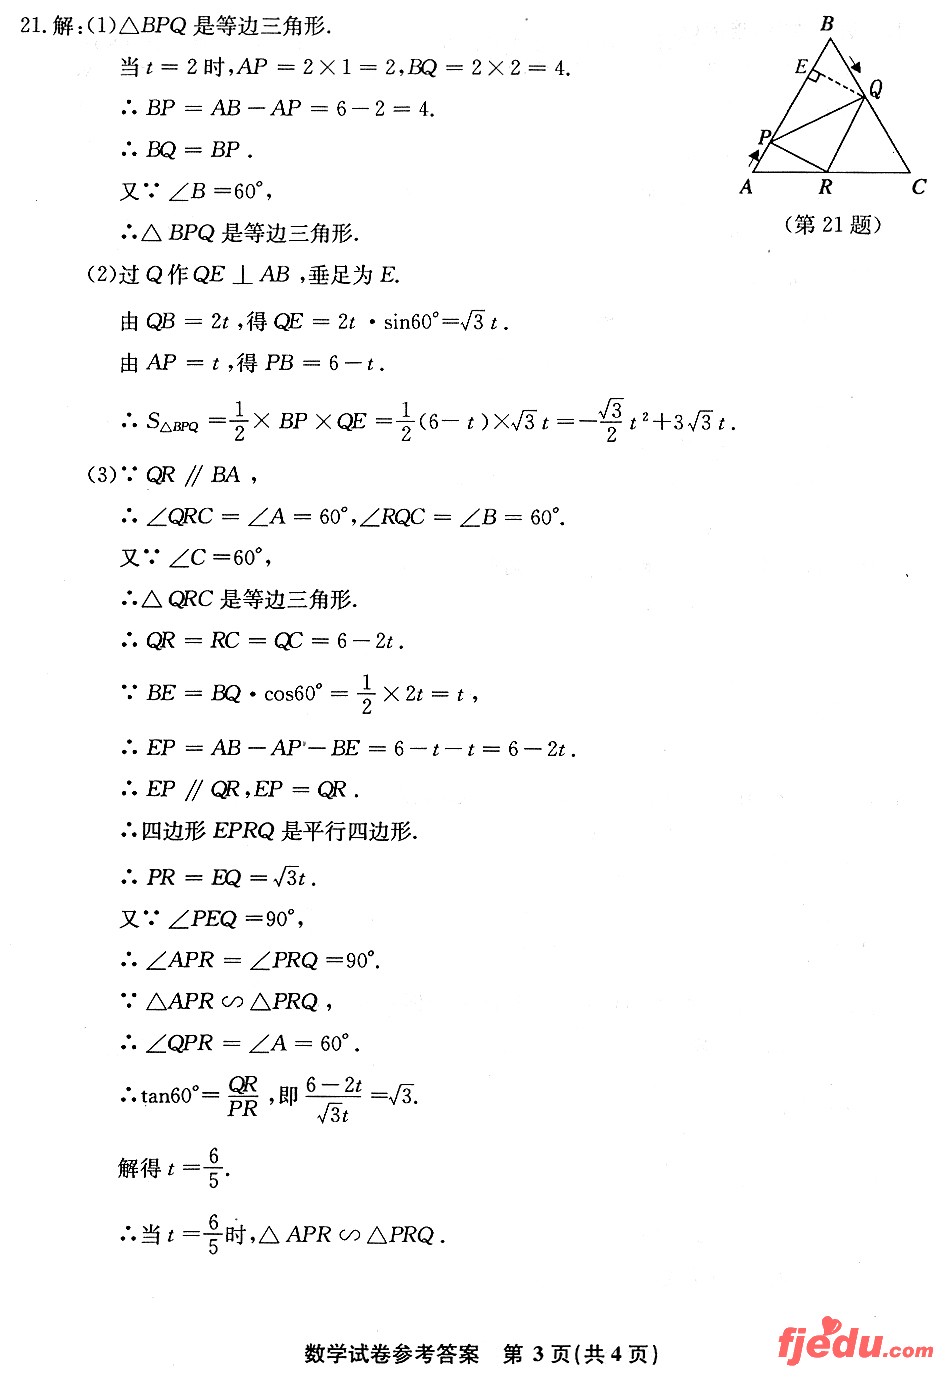 21.解:(1)△BPQ 是等边三角形.
当 t = 2 时,AP = 2×1 = 2,BQ = 2×2 = 4.
∴ BP = AB－AP = 6－2 = 4.
∴ BQ = BP .
又∵ ∠B =60°,
∴△ BPQ 是等边三角形.
(2)过 Q 作 QE ⊥ AB ,垂足为 E.
由 QB = 2t ,得 QE = 2t ·sin60°=√3 t .
由 AP = t ,得 PB = 6－t .
∴ S△BPQ =1/2× BP ×QE =1/2(6－t )×√3 t =－√3/2 t²+3√3 t .
(3)∵ QR ∥ BA ,
∴ ∠QRC = ∠A = 60°,∠RQC = ∠B = 60°.
又∵ ∠C =60°,
∴△ QRC 是等边三角形.
∴ QR = RC = QC = 6－2t .
∵ BE = BQ · cos60° = 1/2 ×2t = t ,
∴ EP = AB－AP－BE = 6－t－t = 6－2t .
∴ EP ∥ QR,EP = QR .
∴四边形 EPRQ 是平行四边形.
∴ PR = EQ =√3t .
又∵ ∠PEQ =90°,
∴ ∠APR = ∠PRQ =90°.
∵ △APR ∽ △PRQ ,
∴ ∠QPR = ∠A = 60° .
∴tan60°= QR/PR ,即 6－2t/√3t =√3.
解得 t =6/5.
∴当 t =6/5时,△ APR ∽ △PRQ .
B
E
Q
P
A
R
C
(第 21 题)
数学试卷参考答案 第 3 页(共 4 页)
fjedu.com